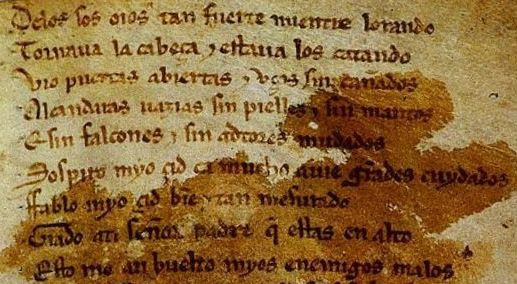 Delos sos oios tan fuerte mientre lorando
Tornaua la cabeça ⁊ estaua los catando
Vio puertas abiertas ⁊ vços sin cannados
Alcandaras uazias sin pielles ⁊ sin mantos
E sin falcones ⁊ sin adtores mudados
Sospiro myo çid ca mucho auie grandes cuydados
Ffablo myo çid bien ⁊ tan mesurado
Grado ati señor padre q̃ estas en alto
Esto me an buelto myos enemigos malos